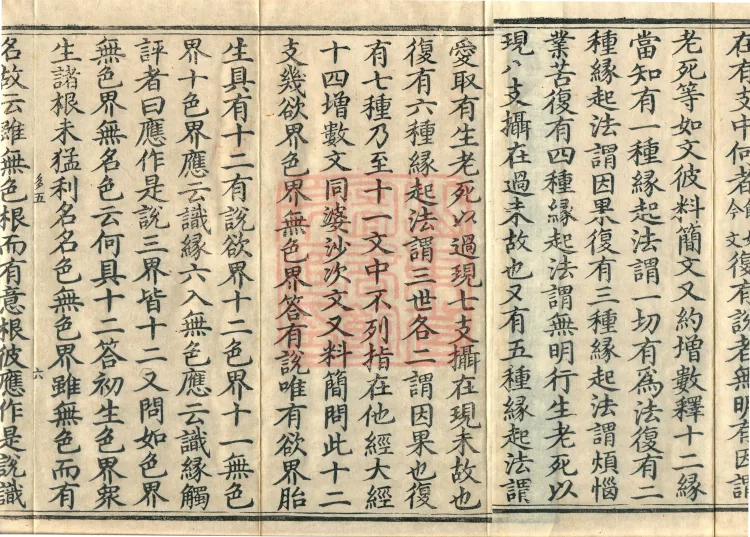 在有支中何者今文復有說者無明有因謂
老死等如文彼料簡文又約增數釋十二緣
當知有一種緣起法謂一切有為法復有二
種緣起法謂因果復有三種緣起法謂煩惱
業苦復有四種緣起法謂無明行生老死以
現八支攝在過未故也又有五種緣起法謂
愛取有生老死以過現七支攝在現未故也
復有六種緣起法謂三世各二謂因果也復
有七種乃至十一文中不列指在他經大經
十四增數文同婆沙次文又料簡問此十二
支幾欲界色界無色界答有說唯有欲界胎
生具有十二有說欲界十二色界十一無色
界十色界應云識緣六入無色應云識緣觸
評者曰應作是說三界皆十二又問如色界
無色界無名色云何具十二答初生色界衆
生諸根未猛利名名色無色界雖無色而有
多五 六
名故云雖無色根而有意根彼應作是說識